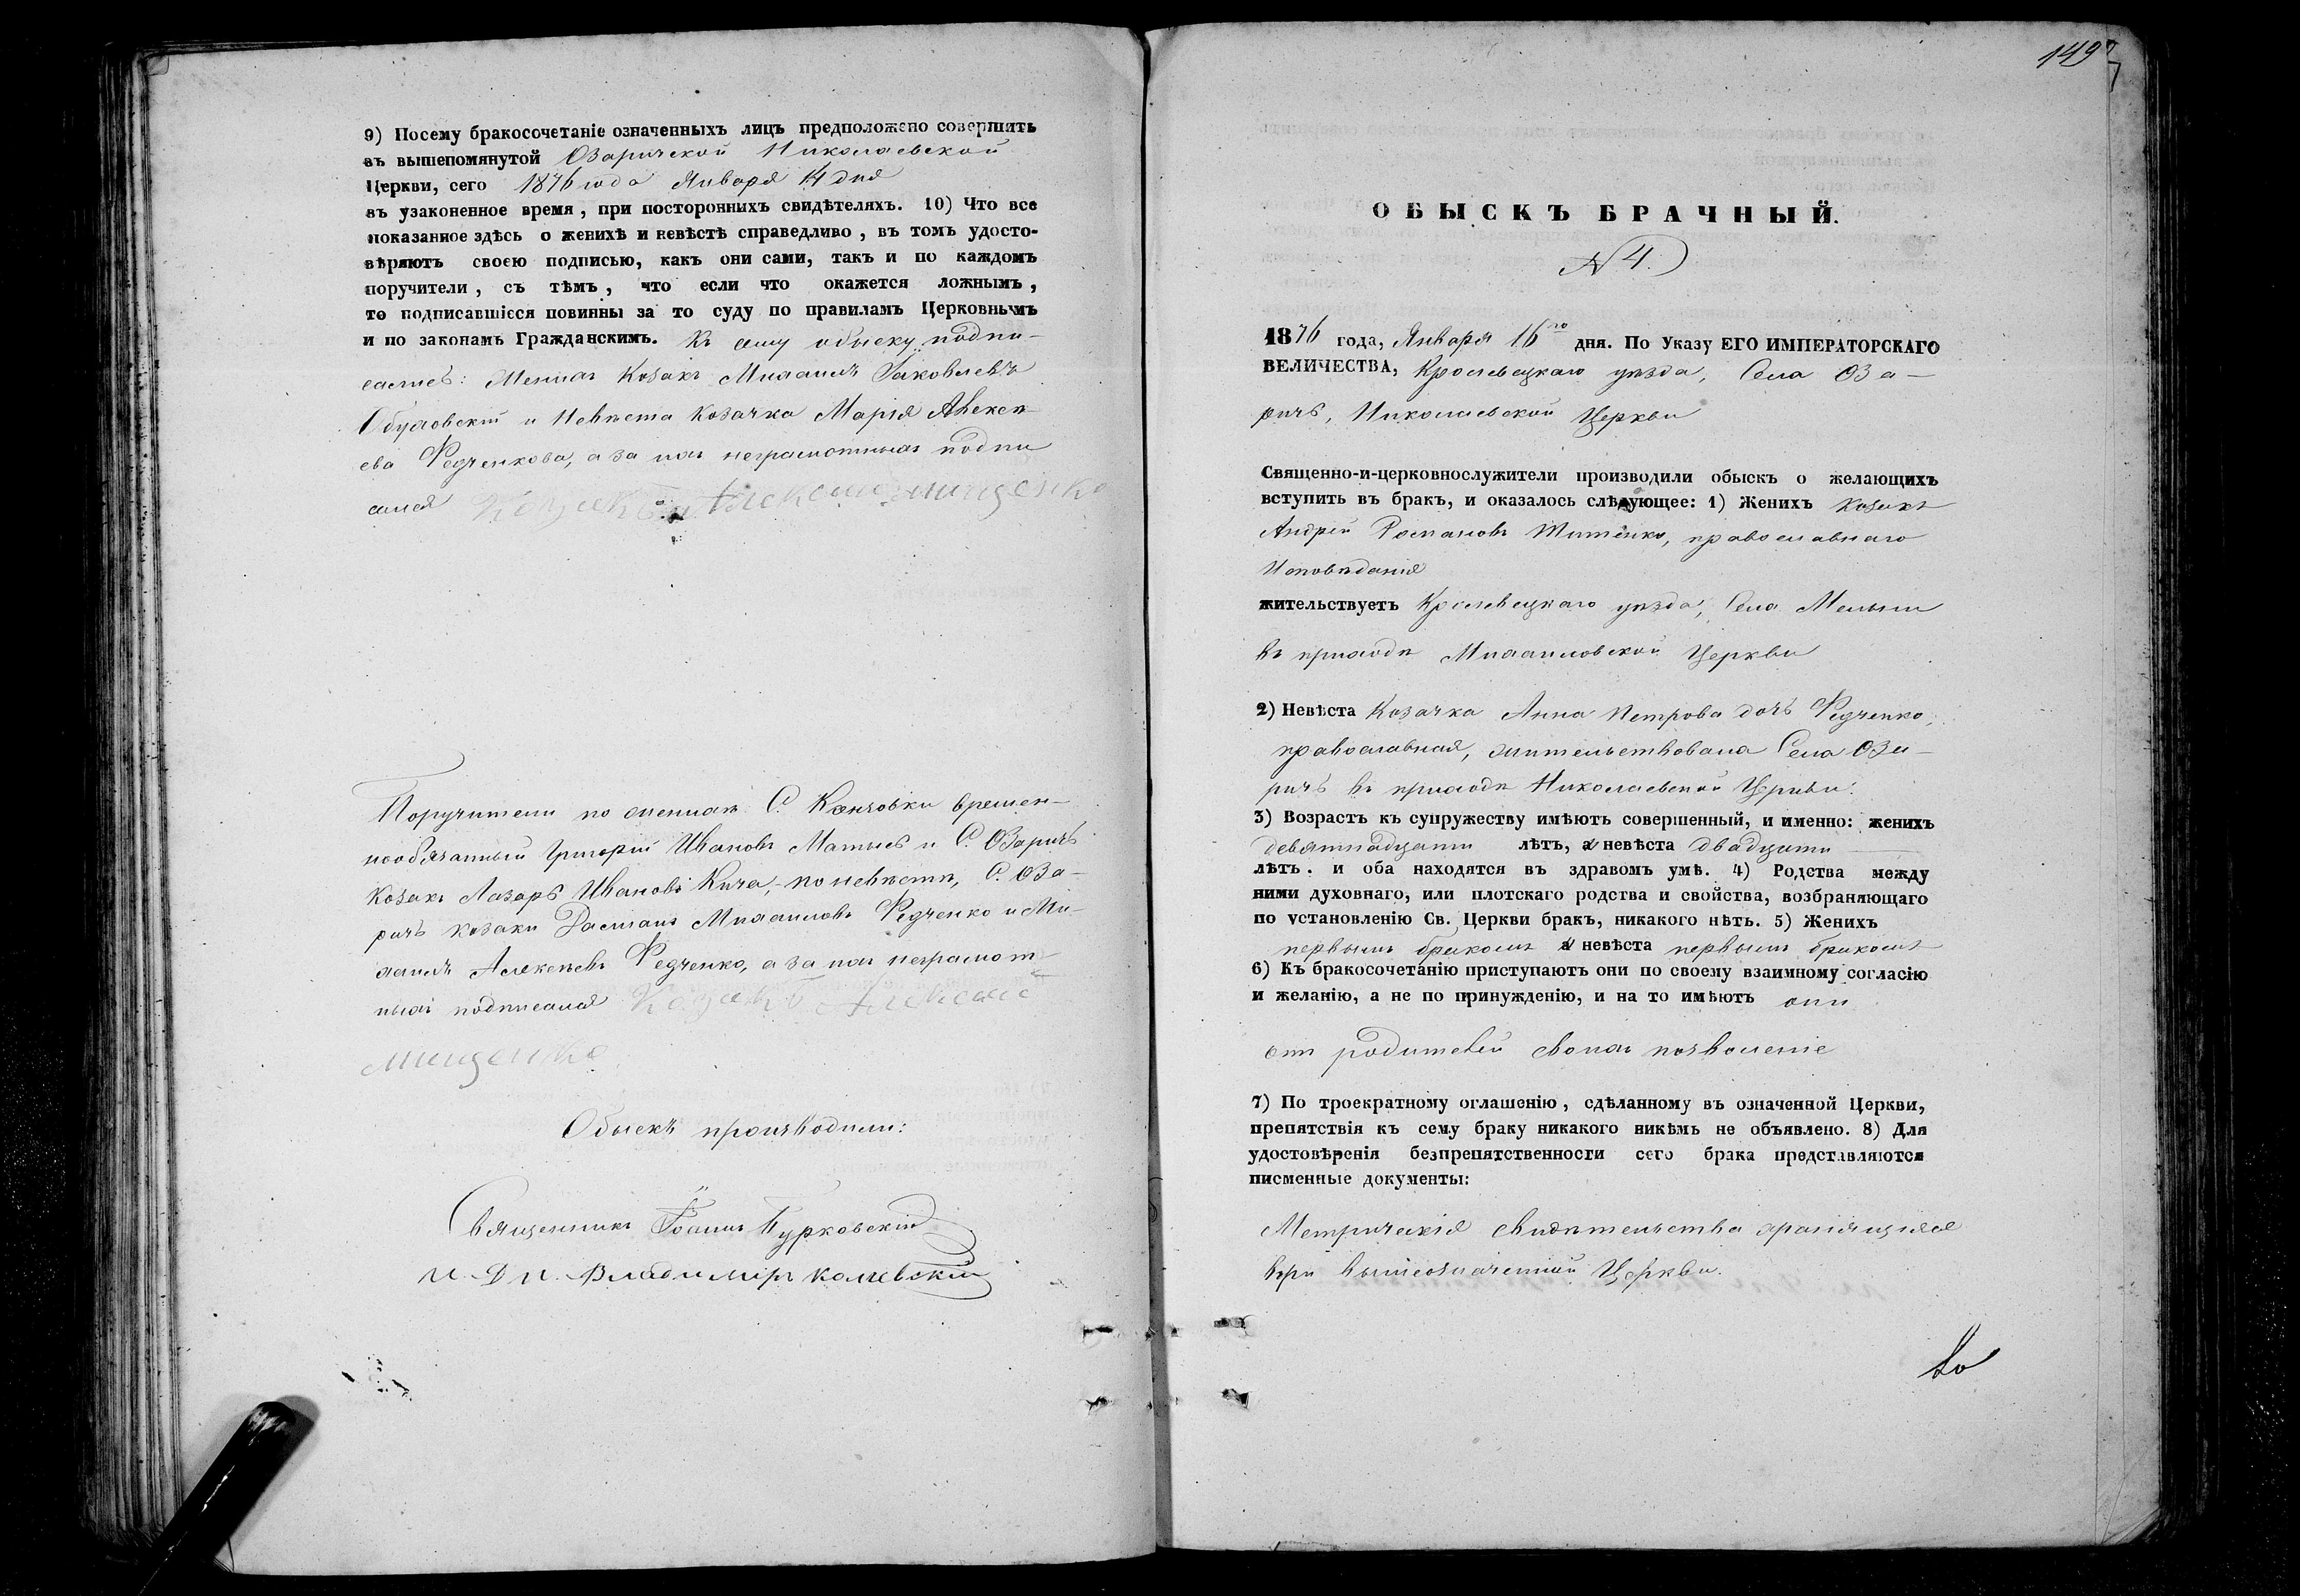 9) Посему бракосочетаніе означенныхъ лицъ предположено совершить
въ вышепомянутой Озаричской Николаевской
Церкви, сего 1876 года Января 14 дня
въ узаконенное время, при постороннихъ свидѣтеляхъ. 10) Что все
показанное здѣсь о женихѣ и невѣстѣ справедливо, въ томъ удосто-
вѣряютъ своею подписью, какъ они сами, такъ и по каждомъ
поручители, съ тѣмъ, что если что окажется ложнымъ,
то подписавшіеся повинны за то суду по правиламъ Церковнымъ
и по законамъ Гражданскимъ. Къ сему обыску подпи-
сались: Женихъ Козакъ Михаилъ Іаковлевъ
и Невѣста Козачка Марія Алексѣ-
ева Федченкова, а за ихъ неграмотныхъ подпи
сался Козакъ Алексей Мищенко
Поручители по женихѣ С. времен-
нообязанный Григорій Ивановъ и С. Озаричъ
Козакъ Лазарь Ивановъ Кича, - по невѣстѣ, С. Оза-
ричъ козаки Михаиловъ Федченко и Ми-
хаилъ Алексѣевъ Федченко, а за ихъ неграмот-
ныхъ подписался Козакъ Алексей
Мищенко
Обыскъ производили:
Священникъ Іоаннъ Бурковскій
И. Д. П. Владиміръ
149
ОБЫСКЪ БРАЧНЫЙ.
N 4.
1876 года, Января 16го дня. По Указу ЕГО ИМПЕРАТОРСКАГО
ВЕЛИЧЕСТВА, Кролевецкаго уѣзда, Села Оза-
ричъ, Николаевской Церкви
Священно-и-церковнослужители производили обыскъ о желающихъ
вступить въ бракъ, и оказалось слѣдующее: 1) Женихъ Козакъ
Андрей Романовъ Титенко, православнаго
Исповѣданія
жительствуетъ Кролевецкаго уѣзда, Села Мельни
въ приходѣ Михаиловской Церкви
2) Невѣста Козачка Анна Петрова дочь Федченко,
православная, жительствовала Села Оза-
ричъ въ приходѣ Николаевской Церкви.
3) Возрастъ къ супружеству имѣютъ совершенный, и именно: женихъ
девятнадцати лѣтъ, а невѣста двадцати
лѣтъ. и оба находятся въ здравомъ умѣ. 4) Родства между
ними духовнаго, или плотскаго родства и свойства, возбраняющаго
по установленію Св. Церкви бракъ, никакого нѣтъ. 5) Женихъ
первымъ бракомъ а невѣста первымъ бракомъ
6) Къ бракосочетанію приступаютъ они по своему взаимному согласію
и желанію, а не по принужденію, и на то имѣютъ они
отъ родителей своихъ позволеніе
7) По троекратному оглашенію, сдѣланному въ означенной Церкви,
препятствія къ сему браку никакого никѣмъ не объявлено. 8) Для
удостовѣренія безпрепятственности сего брака представляются
писменные документы:
Метрическія свидѣтельства хранящіяся
при вышеозначенной Церкви.